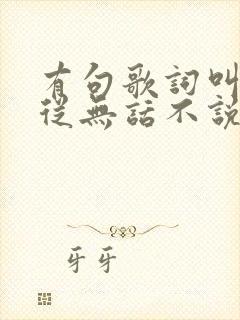 有句歌詞叫
從無話不說
牙牙